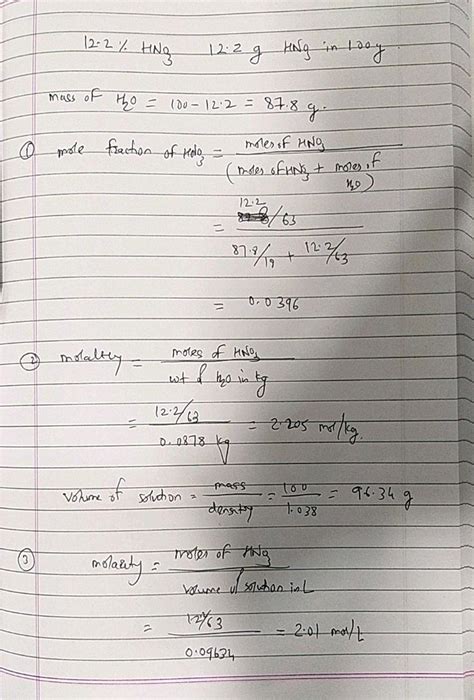 12.2 % HNO3 12.2 g HNO3 in 100g.
mass of H2O = 100 - 12.2 = 87.8 g.
① mole fraction of HNO3 = moles of HNO3 / (moles of HNO3 + moles of H2O)
= 12.2/63 / 87.8/19 + 12.2/63
= 0.0396
② molality = moles of HNO3 / wt of H2O in kg
= 12.2/63 / 0.0878 kg = 2.205 mol/kg.
Volume of solution = mass / density = 100 / 1.038 = 96.34 g
③ molarity = moles of HNO3 / volume of solution in L
= 12.2/63 / 0.09634 = 2.01 mol/L